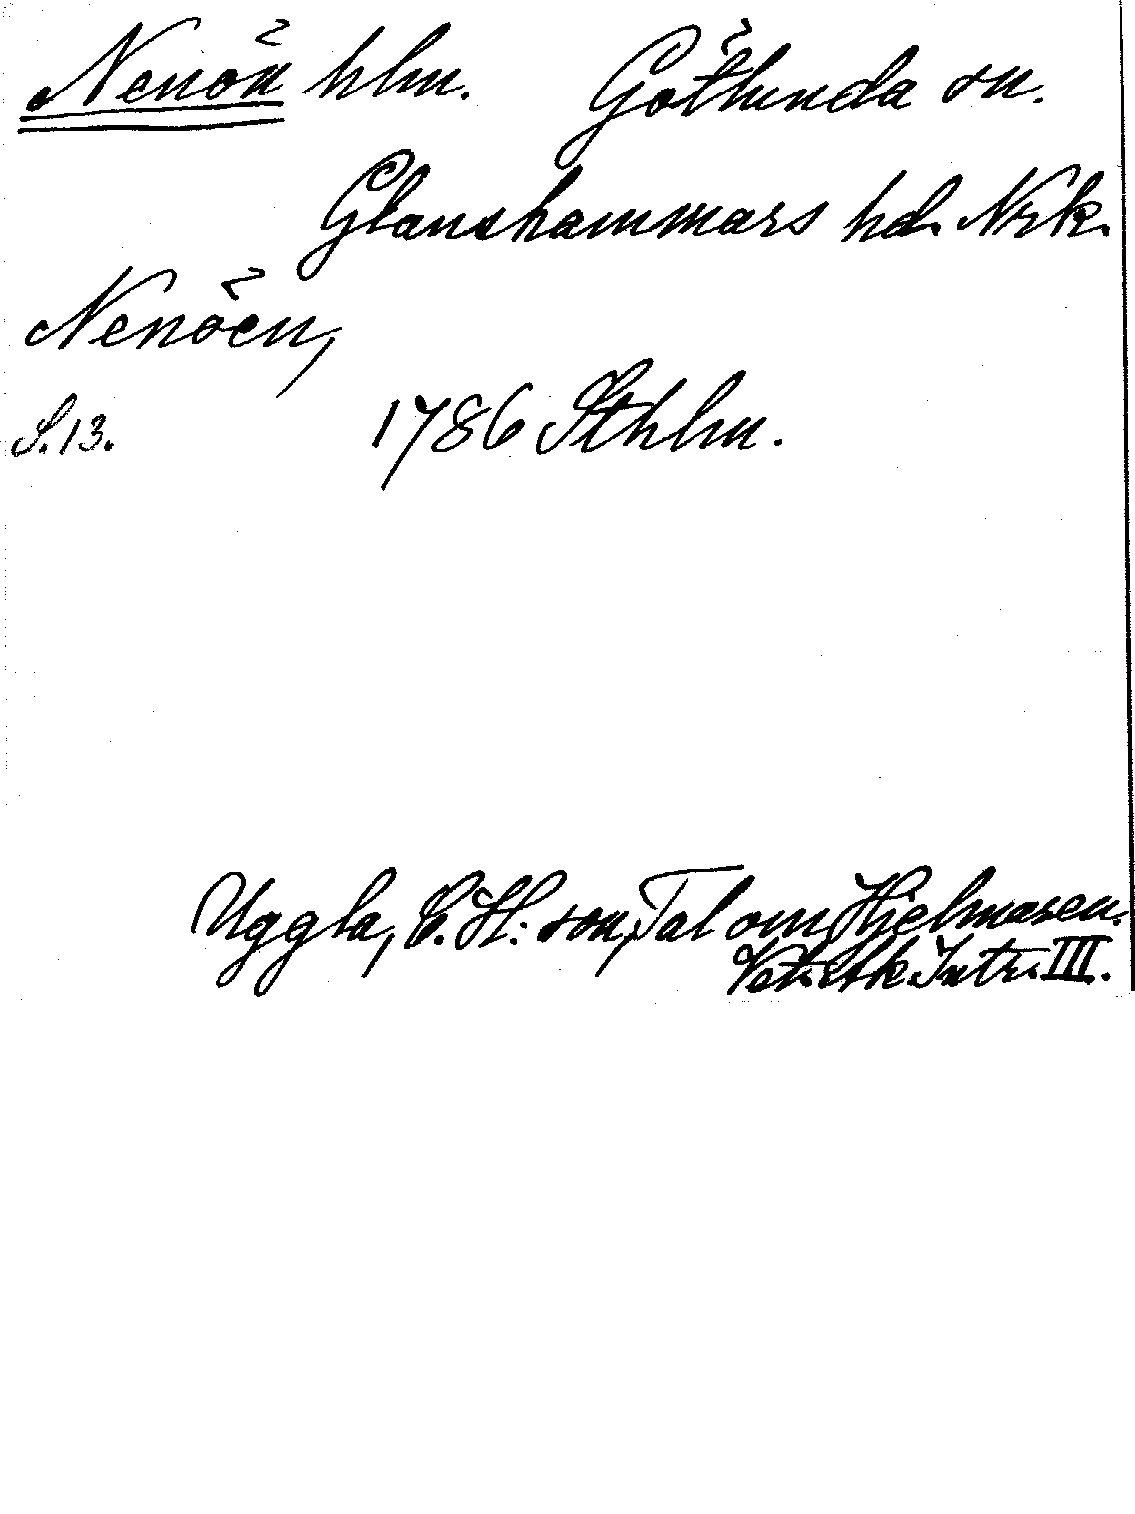 Nenön hlm. Göthunda sn.
Glanshammars hd. Nrk.
Nenöen,
S. 13. 1786 Sthlm.
Uggla, C. H:son, Tal om Hjelmaren.
Vet. Intr. III.